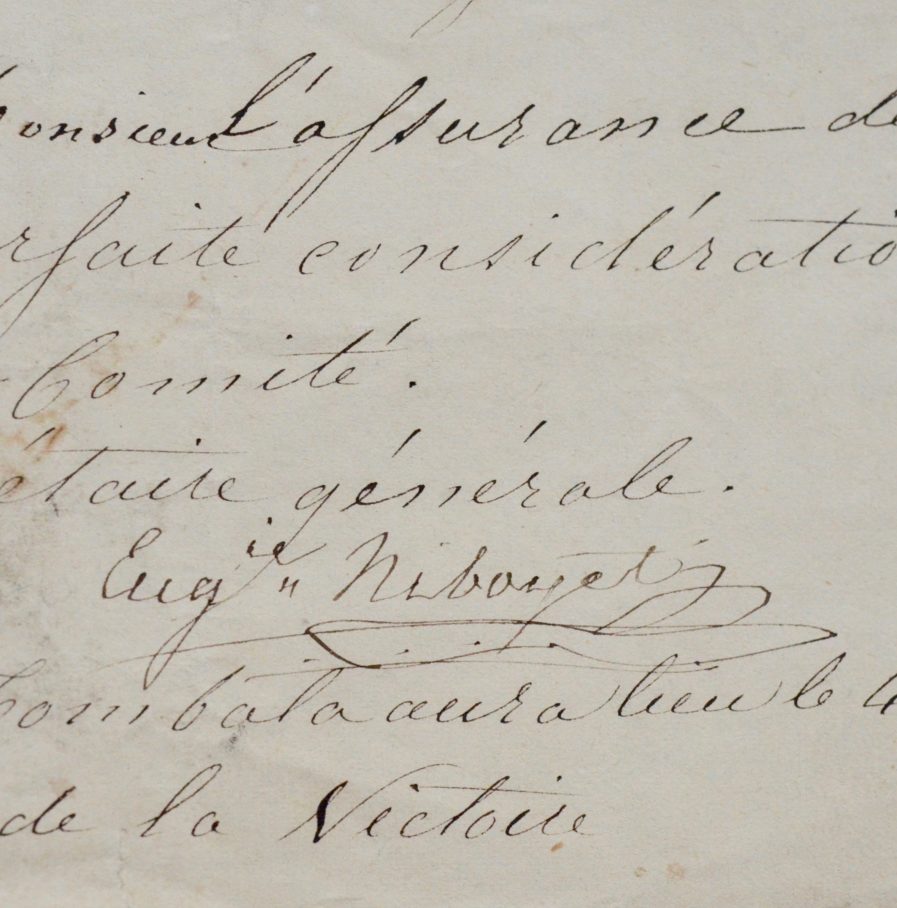 Monsieur l'assurance de
rfaite considératio
Comité.
étaire générale.
Eug^ie Niboyet
aura lieu le 4
de la Victoire